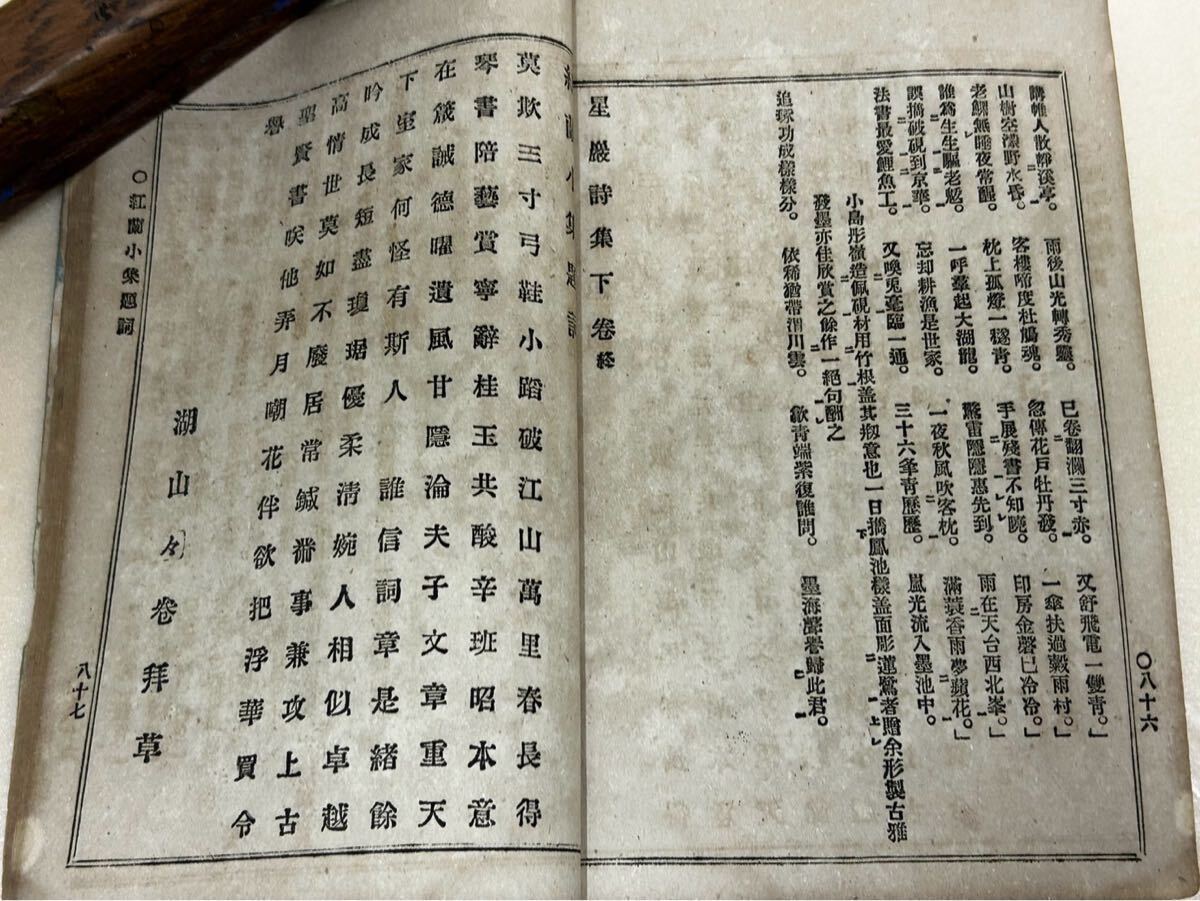 〇八十六
講帷人散靜溪亭。雨後山光轉秀靈。已卷翻瀾三寸赤。又舒飛電一雙青。」
山樹空濛野水昏。客樓啼度杜鵑魂。忽傳花戸牡丹發。一傘扶過穀雨村。」
老鰥無睡夜常醒。枕上孤燈一穟青。手展殘書不知曉。印房金磬已冷冷。」
誰爲生生驅老魃。一呼羣起大湖龍。驚雷隱隱惠先到。雨在天台西北峯。」
誤擕破硯到京華。忘却耕漁是世家。一夜秋風吹客枕。滿蓑香雨夢蘋花。」
法書最愛鯉魚工。又喚兎毫臨一通。三十六峯青歷歷。嵐光流入墨池中。
小島彤嶺造佩硯材用竹根盖其剏意也一日擕鳳池樣盖面彫蓮鷺者贈余形製古雅
發墨亦佳欣賞之餘作一絕句酬之
追琢功成樣樣分。依稀猶帶渭川雲。歙青端紫復誰問。墨海聲譽歸此君。
星巖詩集下卷終
紅蘭小集題詞
莫欺三寸弓鞋小蹈破江山萬里春長得
琴書陪藝賞寧辭桂玉共酸辛班昭本意
在箴誡德曜遺風甘隱淪夫子文章重天
下室家何怪有斯人　誰信詞章是緒餘
吟成長短盡瓊琚優柔淸婉人相似卓越
高情世莫如不廢居常鍼黹事兼攻上古
聖賢書咲他弄月嘲花伴欲把浮華買令
譽
湖山々卷拜草
〇紅蘭小集題詞
八十七